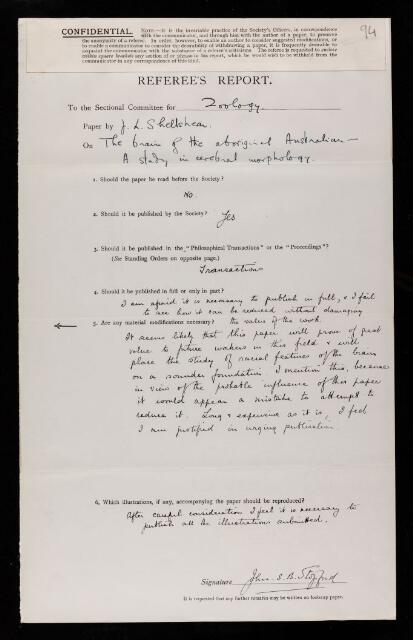 94
CONFIDENTIAL. NOTE—It is the invariable practice of the Society's Officers, in correspondence
with the communicator, and through him with the author of a paper, to preserve
the anonymity of a referee. In order, however, to enable an author to consider suggested modifications, or
to enable a communicator to consider the desirability of withdrawing a paper, it is frequently desirable to
expound the communicator with the substance of a referee's criticisms. The referee is requested to enclose
within square brackets any section of or phrase in his report, which he would wish to be withheld from the
communicator in any correspondence of this kind.
REFEREE'S REPORT.
To the Sectional Committee for Zoology.
Paper by J. L. Shellshear.
On The brain of the aboriginal Australian—
A study in cerebral morphology.
1. Should the paper be read before the Society?
No.
2. Should it be published by the Society? Yes
3. Should it be published in the "Philosophical Transactions" or the "Proceedings"?
(See Standing Orders on opposite page.)
Transactions
4. Should it be published in full or only in part?
I am afraid it is necessary to publish in full, & I fail
to see how it can be reduced without damaging
5. Are any material modifications necessary? the value of the work.
It seems likely that this paper will prove of great
value to future workers in this field & will
place the study of racial features of the brain
on a sounder foundation. I mention this, because
in view of the probable influence of this paper
it would appear a mistake to attempt to
reduce it. Long & expensive as it is, I feel
I am justified in urging publication.
6. Which illustrations, if any, accompanying the paper should be reproduced?
After careful consideration I feel it is necessary to
publish all the illustrations submitted.
Signature John. S. B. Stopford
It is requested that any further remarks may be written on foolscap paper.